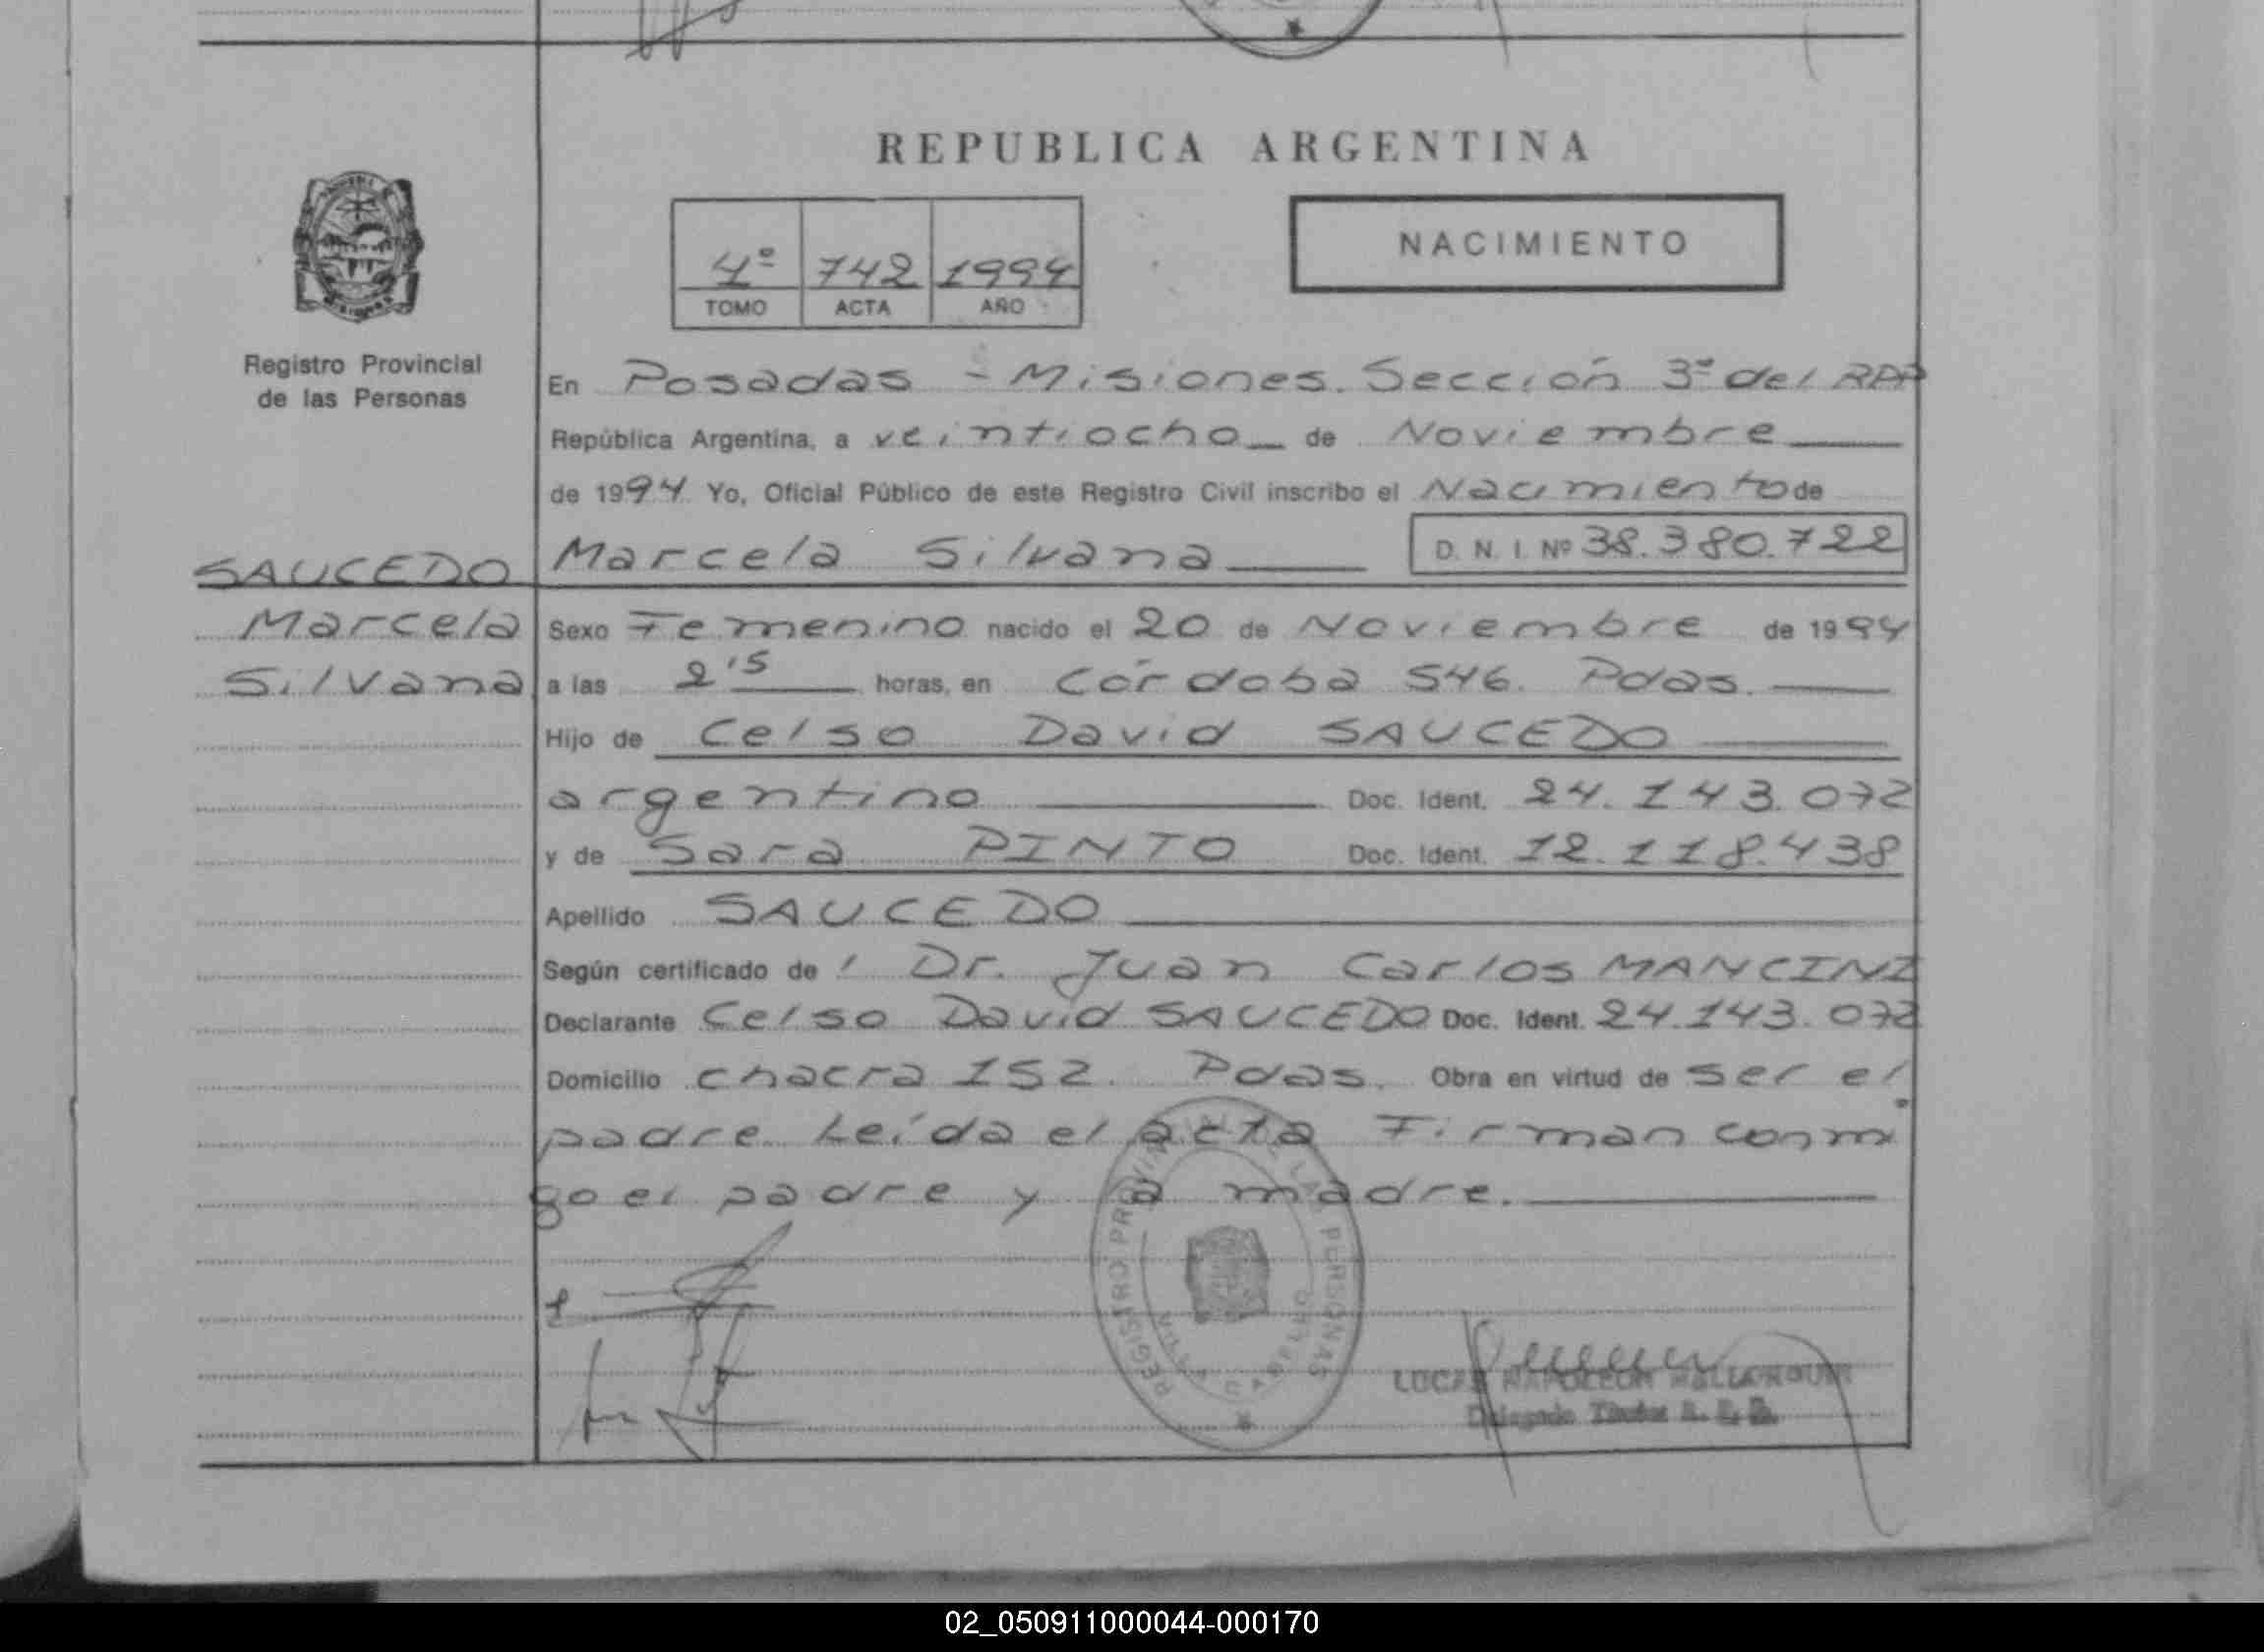 REPUBLICA ARGENTINA
NACIMIENTO
4º 742 1994
TOMO ACTA AÑO
Registro Provincial
de las Personas
En Posadas - Misiones. Sección 3ª del RPP
República Argentina, a veintiocho de Noviembre
de 1994 Yo, Oficial Público de este Registro Civil inscribo el Nacimiento de
SAUCEDO Marcela Silvana D. N. I. Nº 38.380.722
Marcela Sexo Femenino nacido el 20 de Noviembre de 1994
Silvana a las 2'15 horas, en Córdoba 546. Pdas.
Hijo de Celso David SAUCEDO
argentino Doc. Ident. 24.143.072
y de Sara PINTO Doc. Ident. 12.118.438
Apellido SAUCEDO
Según certificado de l Dr. Juan Carlos MANCINI
Declarante Celso David SAUCEDO Doc. Ident. 24.143.072
Domicilio chacra 152. Pdas. Obra en virtud de ser el
padre. Leída el acta Firman conmi
go el padre y la madre.
REGISTRO PROVINCIAL DE LAS PERSONAS
LUCAS NAPOLEON
Delegado Titular R. P. P.
02_050911000044-000170